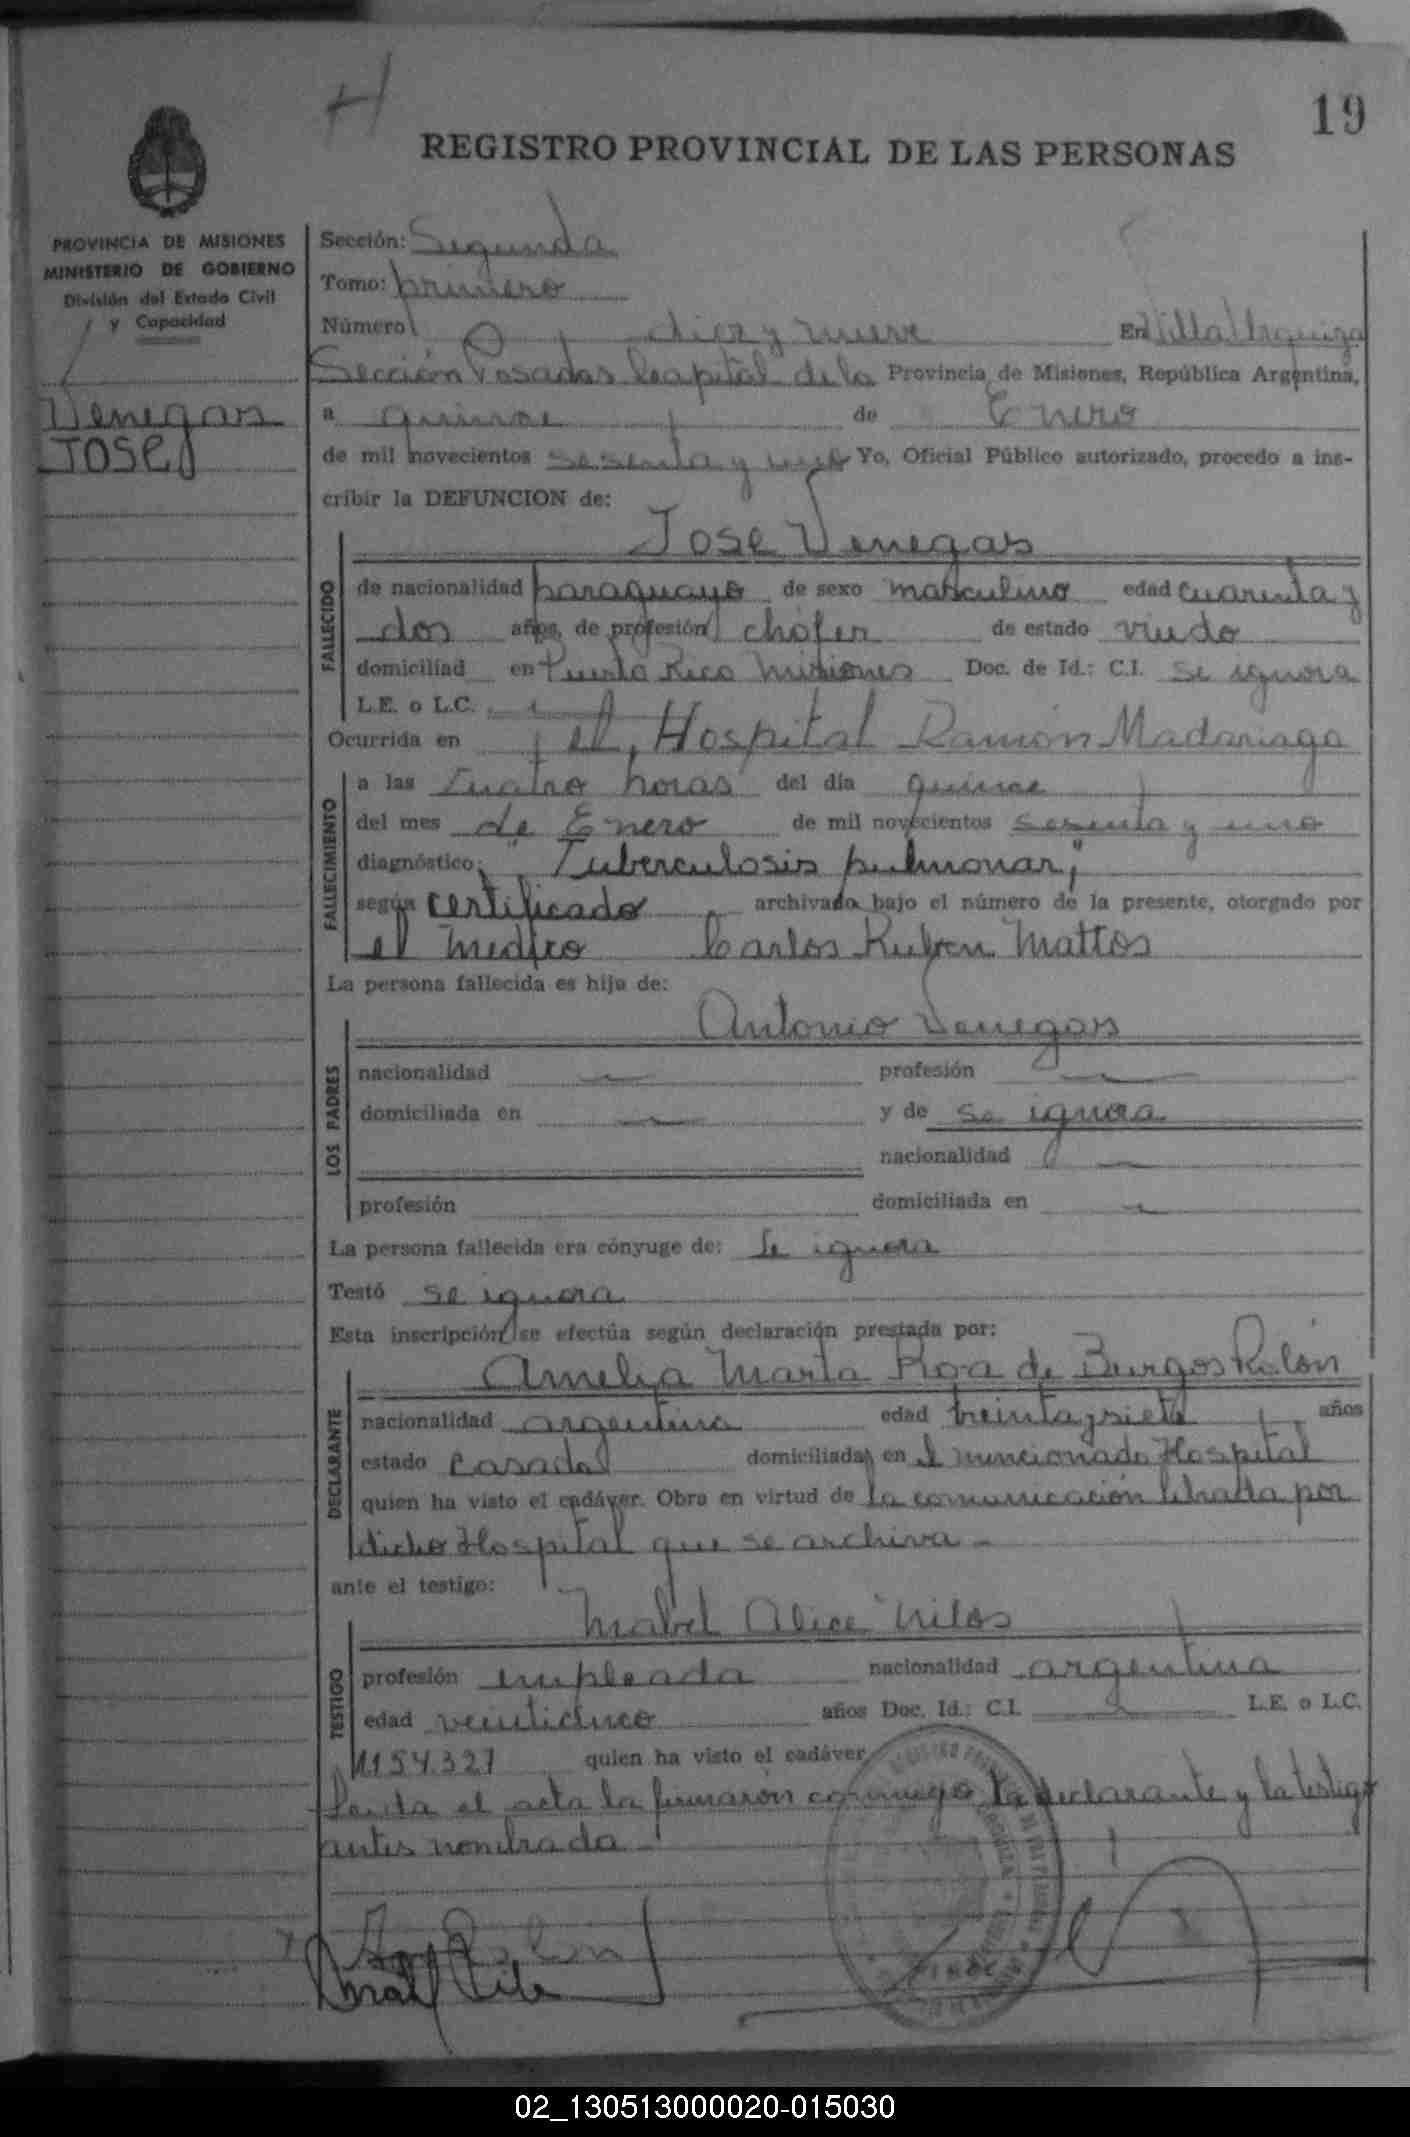 19
REGISTRO PROVINCIAL DE LAS PERSONAS
PROVINCIA DE MISIONES
MINISTERIO DE GOBIERNO
División del Estado Civil
y Capacidad
Venegas
Jose
Sección: Segunda
Tomo: primero
Número diez y nueve En Villa Urquiza
Sección Posadas Capital de la Provincia de Misiones, República Argentina,
a quince de Enero
de mil novecientos sesenta y uno Yo, Oficial Público autorizado, procedo a ins-
cribir la DEFUNCION de:
Jose Venegas
FALLECIDO
de nacionalidad paraguayo de sexo masculino edad cuarenta y
dos años, de profesión chófer de estado viudo
domiciliad en Puerto Rico Misiones Doc. de Id.: C.I. se ignora
L.E. o L.C.
Ocurrida en el Hospital Ramón Madariaga
FALLECIMIENTO
a las cuatro horas del día quince
del mes de Enero de mil novecientos sesenta y uno
diagnóstico: "Tuberculosis pulmonar,"
según certificado archivado bajo el número de la presente, otorgado por
el medico Carlos Ruben Mattos
La persona fallecida es hija de:
Antonio Venegas
LOS PADRES
nacionalidad profesión
domiciliada en y de se ignora
nacionalidad
profesión domiciliada en
La persona fallecida era cónyuge de: se ignora
Testó se ignora
Esta inscripción se efectúa según declaración prestada por:
Amelia Marta Roa de Burgos Rolón
DECLARANTE
nacionalidad argentina edad treinta y siete años
estado casada domiciliada en el mencionado Hospital
quien ha visto el cadáver. Obra en virtud de la comunicación librada por
dicho Hospital que se archiva -
ante el testigo:
Mabel Alice Milos
TESTIGO
profesión empleada nacionalidad argentina
edad veinticinco años Doc. Id.: C.I. L.E. o L.C.
1154.327 quien ha visto el cadáver
Leida el acta la firmaron conmigo la declarante y la testigo
antes nombrada -
02_130513000020-015030